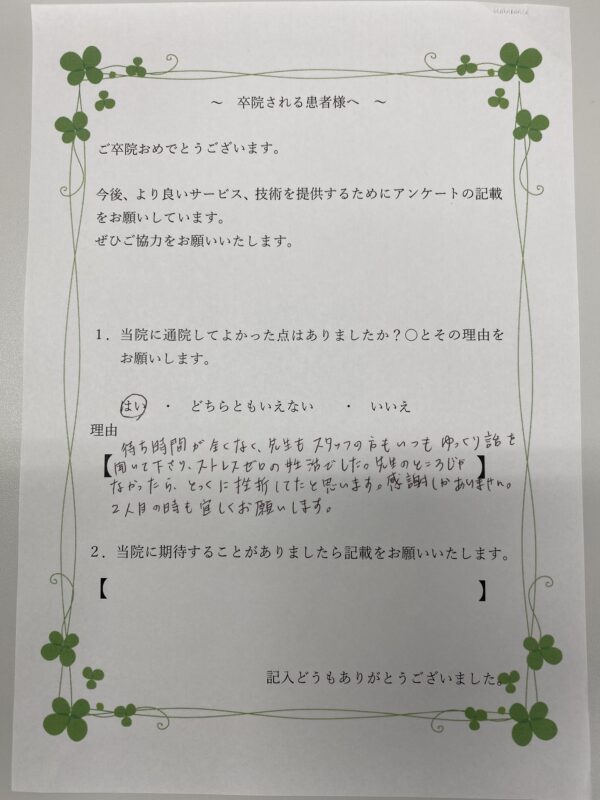 ～ 卒院される患者様へ ～
ご卒院おめでとうございます。
今後、より良いサービス、技術を提供するためにアンケートの記載
をお願いしています。
ぜひご協力をお願いいたします。
１．当院に通院してよかった点はありましたか？○とその理由を
お願いします。
はい ・ どちらともいえない ・ いいえ
理由
待ち時間が全くなく、先生もスタッフの方もいつもゆっくり話を
【聞いて下さり、ストレスゼロの生活でした。先生のところじゃ】
なかったら、とっくに挫折してたと思います。感謝しかありません。
2人目の時も宜しくお願いします。
２．当院に期待することがありましたら記載をお願いいたします。
【 】
記入どうもありがとうございました。